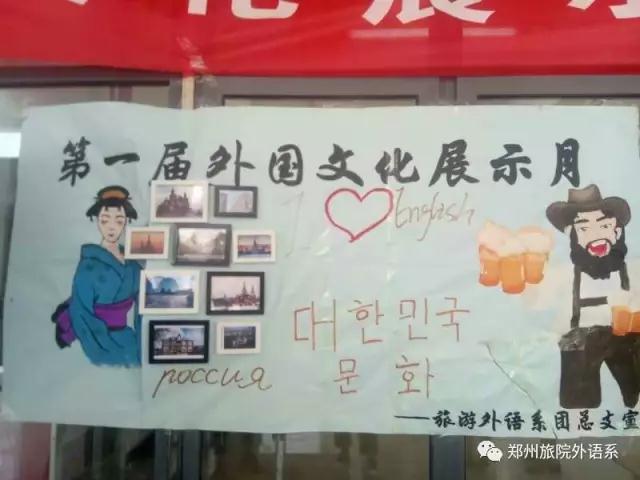 化展示
第一届外国文化展示月
I English
대한민국
문화
россия
——旅游外语系团总支宣
郑州旅院外语系